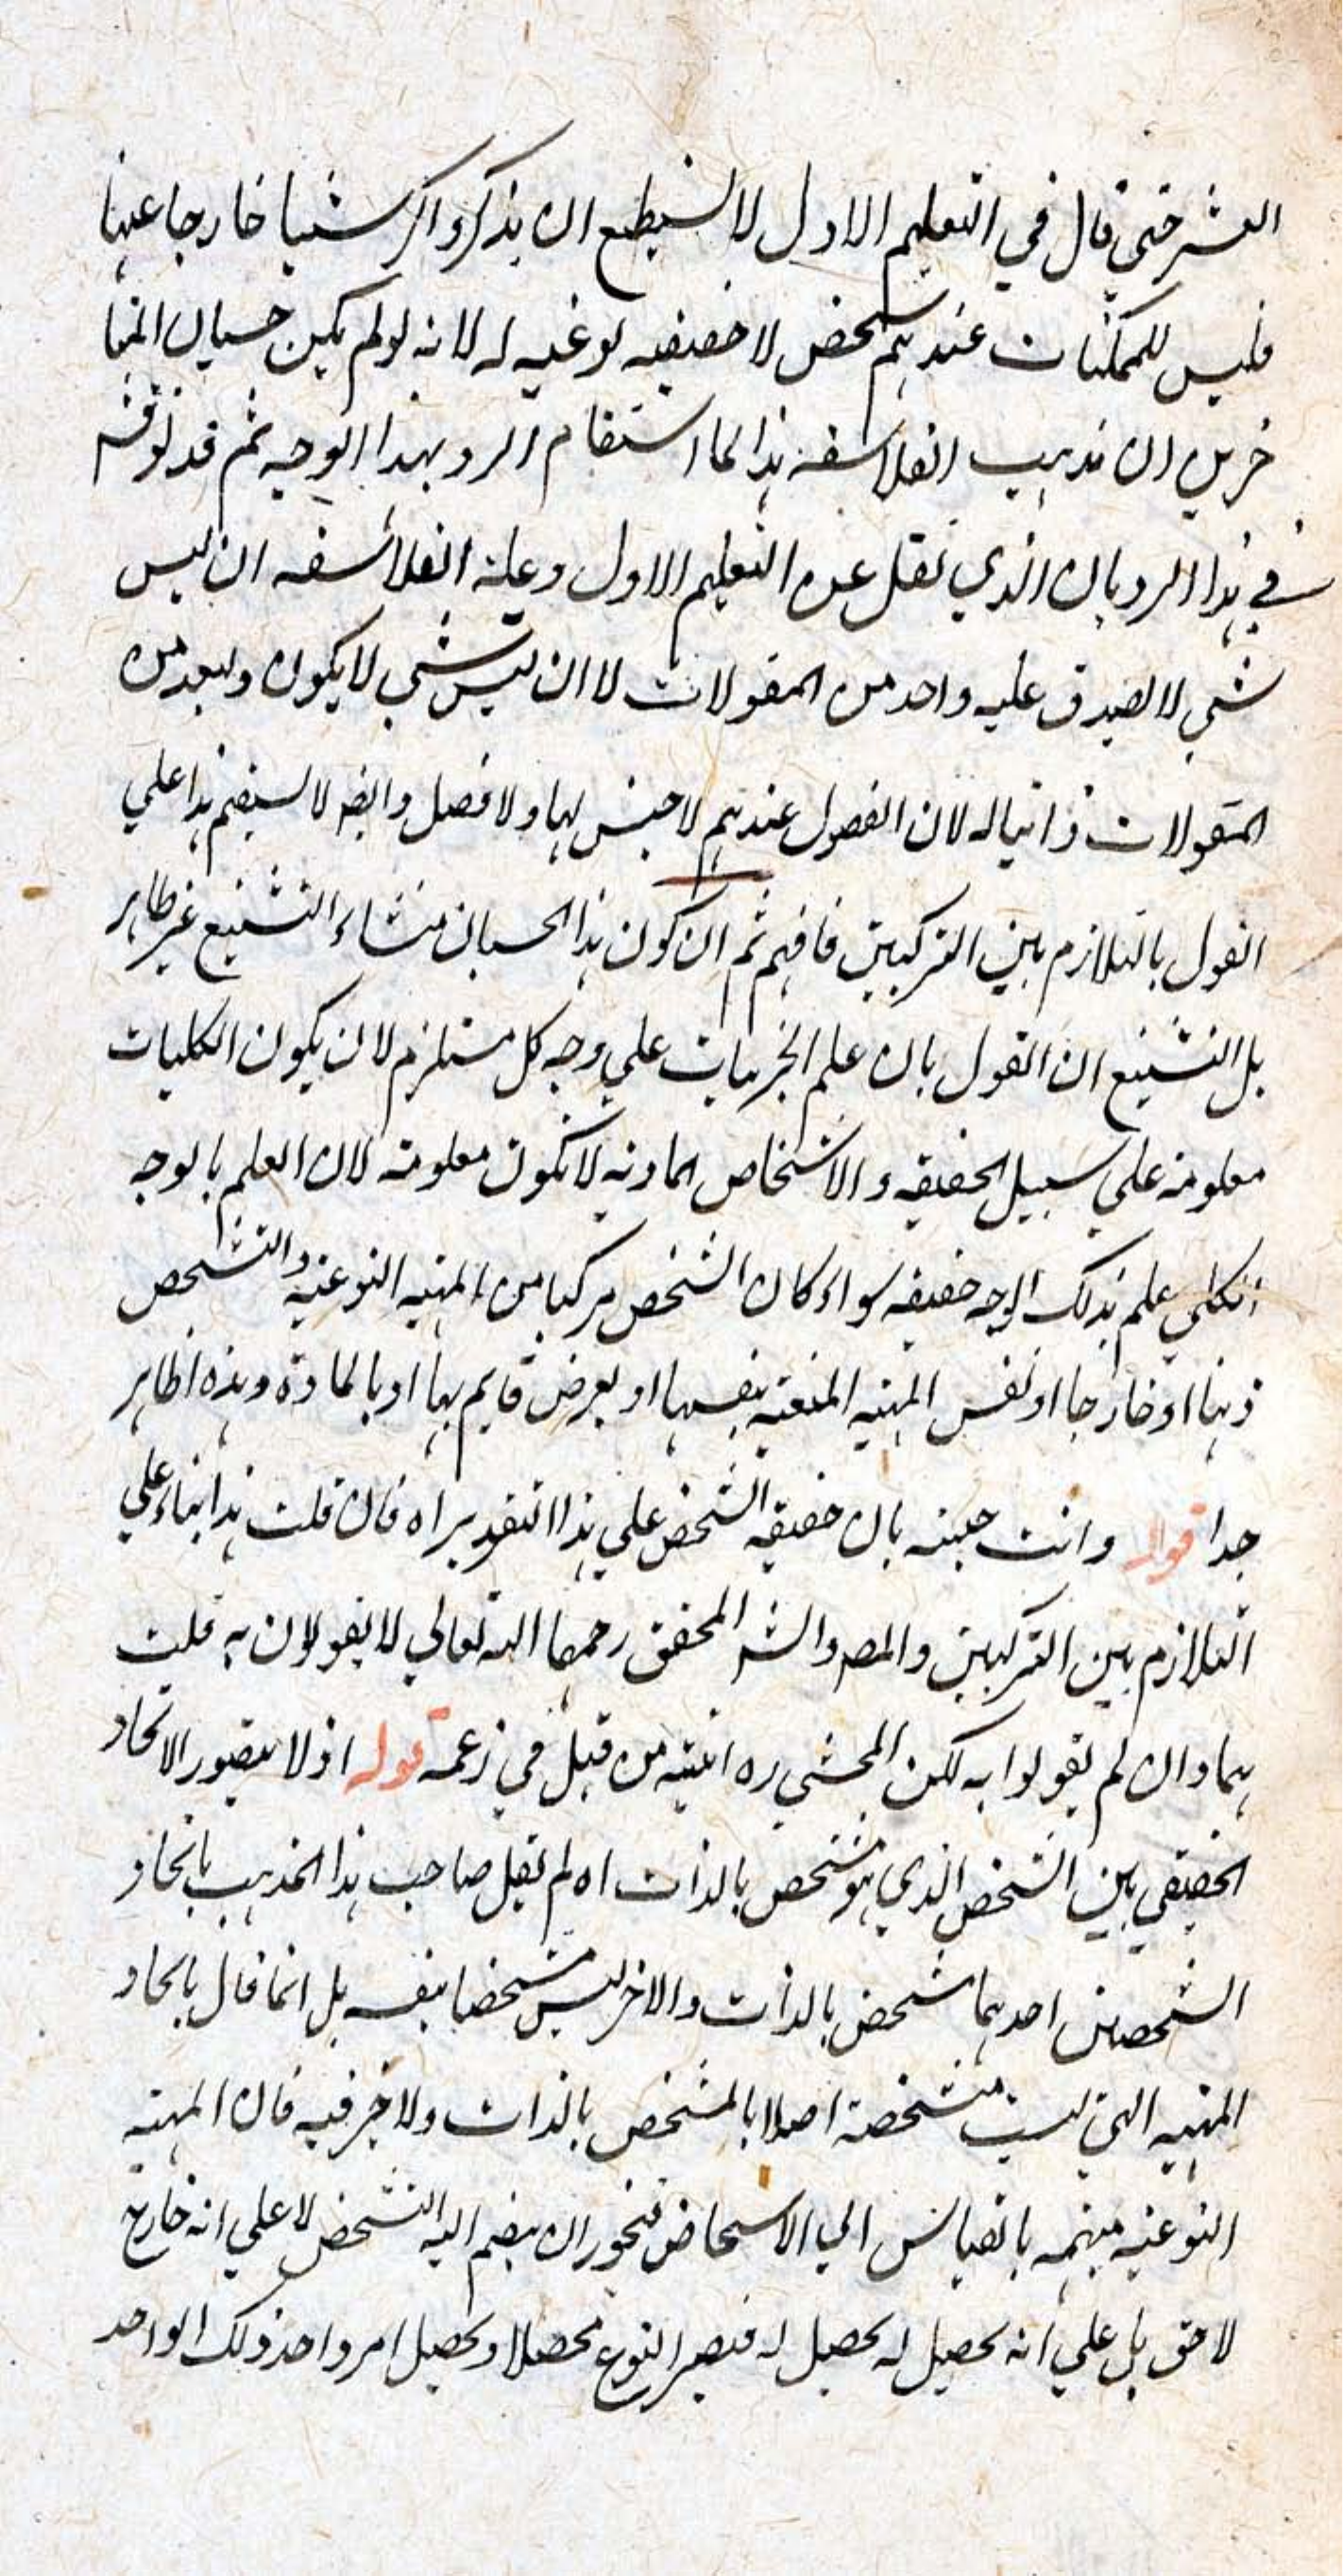 العشر حتى قال في التعليم الاول لا نستطيع ان يذكر ذاكر شيئا خارجا عنها
فليس للممكنات عندهم تشخص لا حقيقيه لو غيه له لانه لولم يكن حسبان المتا
خرين ان مذهب الفلاسفه هذا لما استقام الرد بهذا الوجه ثم قد نوقش
في هذا الرد بان الذي نقل عن التعليم الاول وعليه الفلاسفه ان ليس
شي لا يصدق عليه واحد من المقولات لا ان ليس شي لا يكون واحد من
المقولات ذاتيا له لان الفصول عندهم لا جنس لها ولا فصل وايضا لا يستقيم هذا علي
القول بالتلازم بين التركيبين فافهم ثم ان كون هذا الحسبان منشاء التشنيع غير ظاهر
بل التشنيع ان القول بان علم الجزئيات علي وجه كل مستلزم لان يكون الكليات
معلومة علي سبيل الحقيقه و الاشخاص المادية لا تكون معلومة لان العلم بالوجه
الكلي علم بذلك الوجه حقيقه سواء كان الشخص مركبا من المهيه النوعيه والتشخص
ذهنا او خارجا او نفس المهيه المتعينه بنفسها او بعرض قايم بها او بالمادة وهذه اظاهر
جدا قوله وانت خبير بان حقيقه الشخص علي هذا التقدير اه فان قلت هذا بناء علي
التلازم بين التركيبين والمصـ والشـ المحقق رحمهما الله تعالي لا يقولان به قلت
هما وان لم يقولوا به لكن المحشي ره اثبته من قبل في زعمه قوله اذ لا يتصور الاتحاد
الحقيقي بين الشخص الذي هو مشخص بالذات اه لم يقل صاحب هذا المذهب باتحاد
الشخصين احدهما متشخص بالذات والاخر ليس متشخصا بنفسه بل انما قال باتحاد
المهيه التي ليست متشخصة اصلا بالمشخص بالذات ولا خير فيه فان المهيه
النوعيه مبهمه بالقياس الي الاشخاص فيجوز ان ينضم اليه التشخص لا علي انه خارج
لاحق بل علي انه تحصيل له تحصيل له فيصير النوع محصلا وتحصيل امر واحد ذلك الواحد